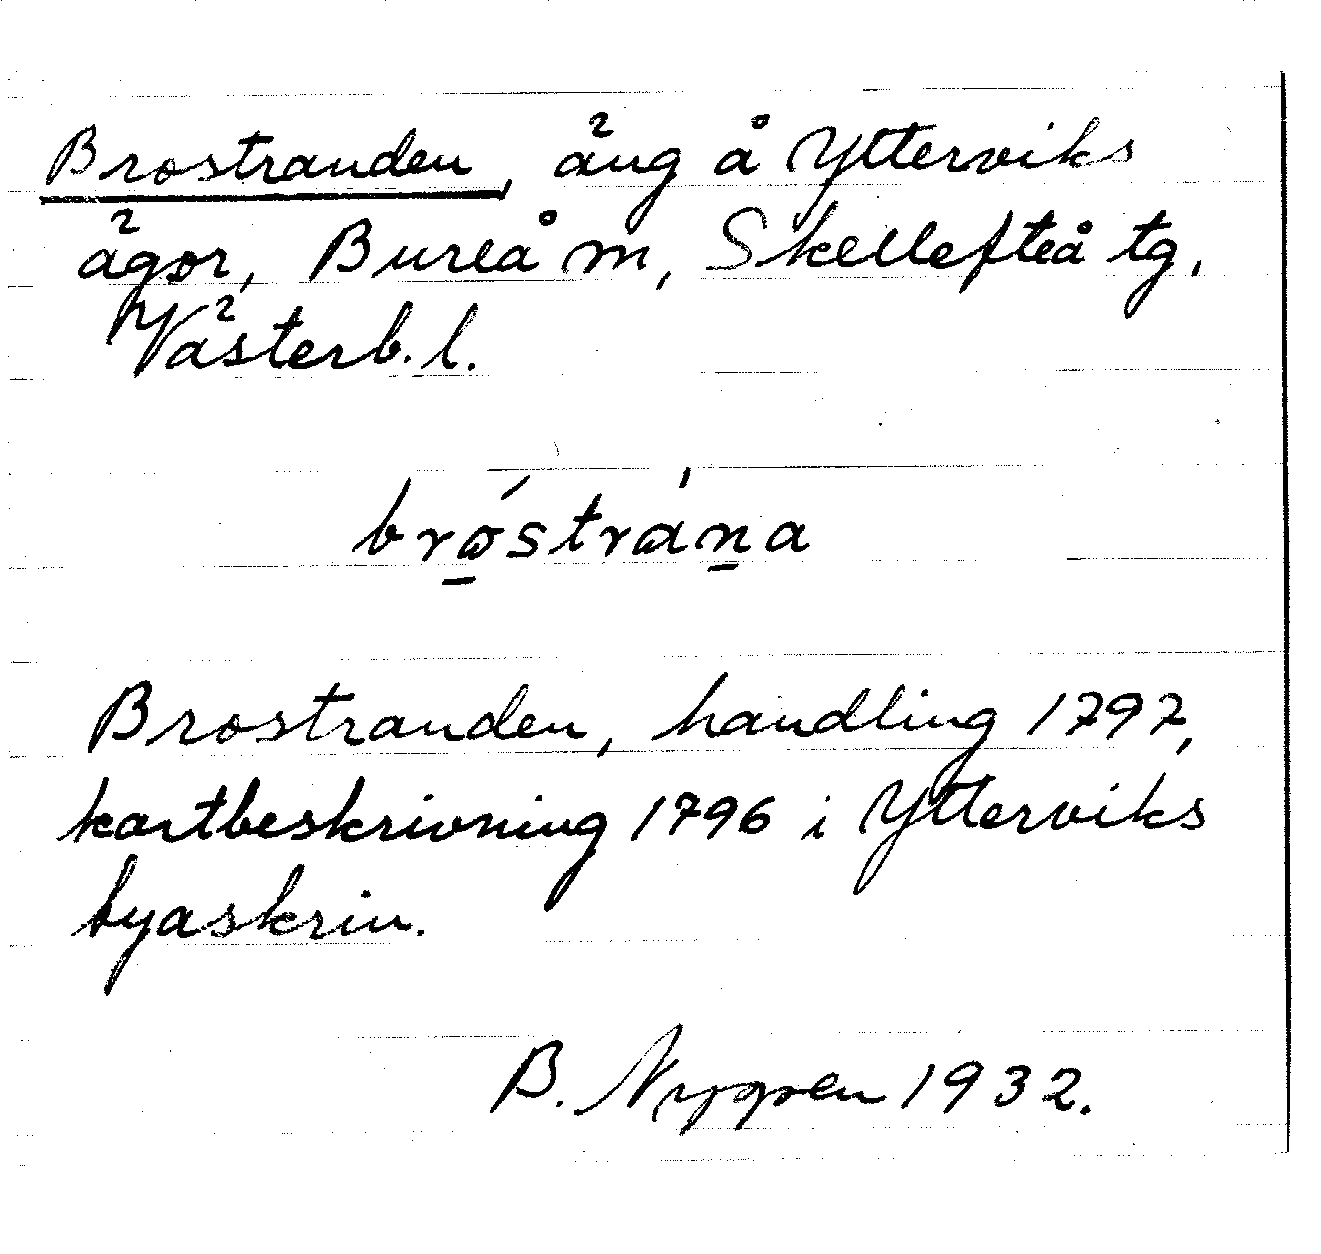 Brostranden, äng å Ytterviks
ägor, Bureå m, Skellefteå tg,
Västerb. l.
brostrana
Brostranden, handling 1797,
kartbeskrivning 1796 i Ytterviks
byaskrin.
B. Nygren 1932.